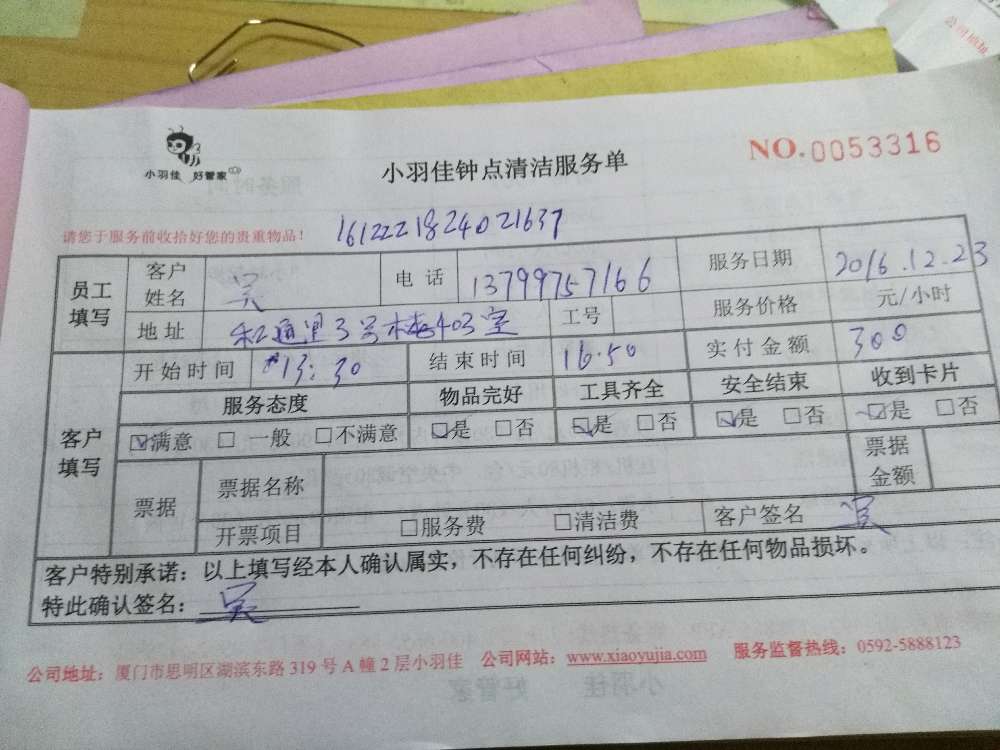 公司地址
小羽佳 好管家
小羽佳钟点清洁服务单
NO.0053316
请您于服务前收拾好您的贵重物品!
1612221824021637
员工填写 客户姓名 吴 电话 13799757166 服务日期 2016.12.23
地址 通道3号楼403室 工号 服务价格 元/小时
客户填写 开始时间 13:30 结束时间 16.50 实付金额 300
服务态度 物品完好 工具齐全 安全结束 收到卡片
☑满意 □ 一般 □不满意 ☑是 □否 ☑是 □否 ☑是 □否 ☑是 □否
票据 票据名称 票据金额
开票项目 □服务费 □清洁费 客户签名 吴
客户特别承诺:以上填写经本人确认属实,不存在任何纠纷,不存在任何物品损坏。
特此确认签名: 吴
公司地址:厦门市思明区湖滨东路 319 号 A 幢 2 层小羽佳 公司网站:www.xiaoyujia.com 服务监督热线:0592-5888123